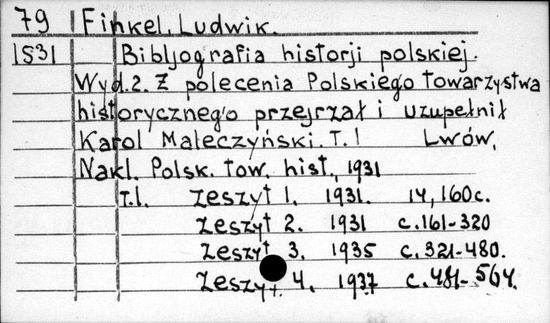 79 Finkel, Ludwik.
1531 Bibljografia historji polskiej.
Wyd. 2. Z polecenia Polskiego towarzystwa
historycznego przejrzał i uzupełnił
Karol Maleczyński. T. 1 Lwów,
Nakl. Polsk. tow. hist., 1931
T. 1. Zeszyt 1. 1931. 14, 160c.
Zeszyt 2. 1931 c. 161-320
Zeszyt 3. 1935 c. 321-480.
Zeszyt 4. 1937 c. 481-564.